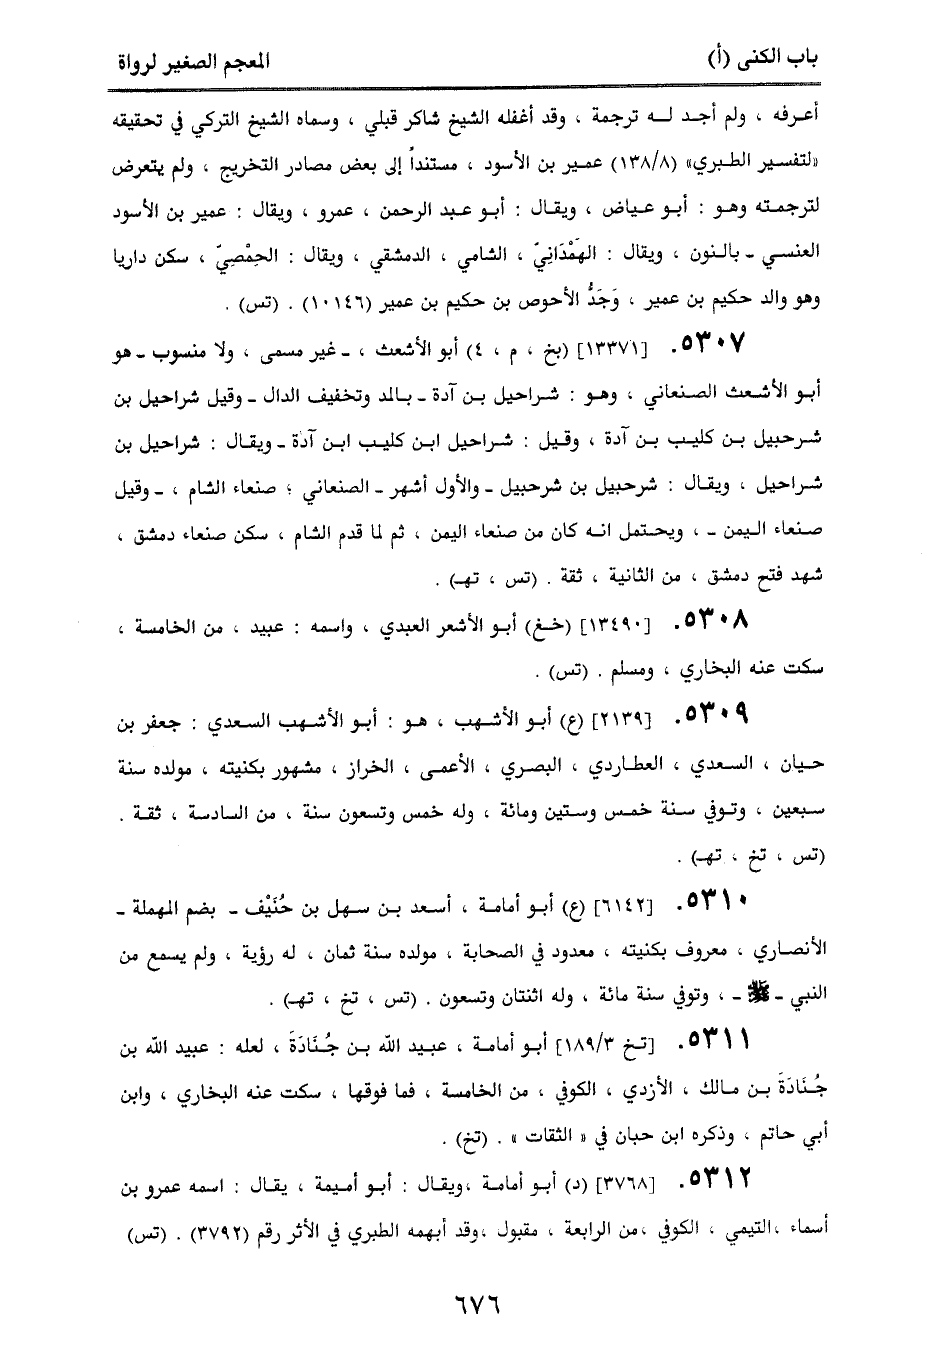 باب الكنى (أ)
المعجم الصغير لرواة
أعرفه ، ولم أجد له ترجمة ، وقد أغفله الشيخ شاكر قبلي ، وسماه الشيخ التركي في تحقيقه
«لتفسير الطبري» (١٣٨/٨) عمير بن الأسود ، مستنداً إلى بعض مصادر التخريج ، ولم يتعرض
لترجمته وهو : أبو عياض ، ويقال : أبو عبد الرحمن ، عمرو ، ويقال : عمير بن الأسود
العنسي ـ بالنون ، ويقال : الهَمْدَانِيّ ، الشامي ، الدمشقي ، ويقال : الحِمْصِيّ ، سكن داريا
وهو والد حكيم بن عمير ، وَجَدُّ الأحوص بن حكيم بن عمير (١٠١٤٦) . (تس) .
٥٣٠٧. [١٣٣٧١] (بخ ، م ، ٤) أبو الأشعث ، ـ غير مسمى ، ولا منسوب ـ هو
أبو الأشعث الصنعاني ، وهو : شراحيل بن آدة ـ بالمد وتخفيف الدال ـ وقيل شراحيل بن
شرحبيل بن كليب بن آدة ، وقيل : شراحيل ابن كليب ابن آدة ـ ويقال : شراحيل بن
شراحيل ، ويقال : شرحبيل بن شرحبيل ـ والأول أشهر ـ الصنعاني ؛ صنعاء الشام ، ـ وقيل
صنعاء اليمن ـ ، ويحتمل انه كان من صنعاء اليمن ، ثم لما قدم الشام ، سكن صنعاء دمشق ،
شهد فتح دمشق ، من الثانية ، ثقة . (تس ، تهـ) .
٥٣٠٨. [١٣٤٩٠] (خغ) أبو الأشعر العبدي ، واسمه : عبيد ، من الخامسة ،
سكت عنه البخاري ، ومسلم . (تس) .
٥٣٠٩. [٢١٣٩] (ع) أبو الأشهب ، هو : أبو الأشهب السعدي : جعفر بن
حيان ، السعدي ، العطاردي ، البصري ، الأعمى ، الخراز ، مشهور بكنيته ، مولده سنة
سبعين ، وتوفي سنة خمس وستين ومائة ، وله خمس وتسعون سنة ، من السادسة ، ثقة .
(تس ، تخ ، تهـ) .
٥٣١٠. [٦١٤٢] (ع) أبو أمامة ، أسعد بن سهل بن حُنَيْف ـ بضم المهملة ـ
الأنصاري ، معروف بكنيته ، معدود في الصحابة ، مولده سنة ثمان ، له رؤية ، ولم يسمع من
النبي ـ ﷺ ـ ، وتوفي سنة مائة ، وله اثنتان وتسعون . (تس ، تخ ، تهـ) .
٥٣١١. [تخ ١٨٩/٣] أبو أمامة ، عبيد الله بن جُنَادَةَ ، لعله : عبيد الله بن
جُنَادَةَ بن مالك ، الأزدي ، الكوفي ، من الخامسة ، فما فوقها ، سكت عنه البخاري ، وابن
أبي حاتم ، وذكره ابن حبان في « الثقات » . (تخ) .
٥٣١٢. [٣٧٦٨] (د) أبو أمامة ،ويقال : أبو أميمة ، يقال : اسمه عمرو بن
أسماء ،التيمي ، الكوفي ،من الرابعة ، مقبول ،وقد أبهمه الطبري في الأثر رقم (٣٧٩٢) . (تس)
٦٧٦